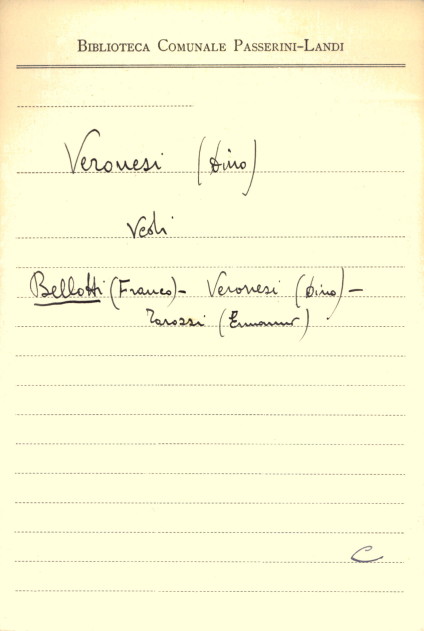 BIBLIOTECA COMUNALE PASSERINI-LANDI
Veronesi (Dino)
Vedi
Bellotti (Franco) - Veronesi (Dino) -
Tarozzi (Ermanno)
C